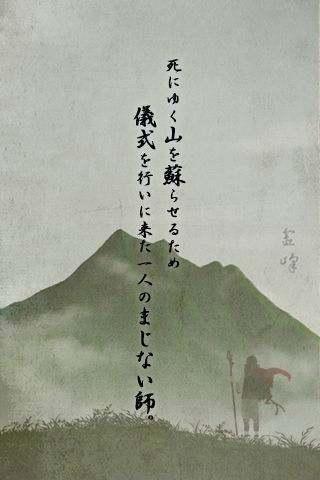 死にゆく山を蘇らせるため
儀式を行いに来た一人のまじない師。
霊峰